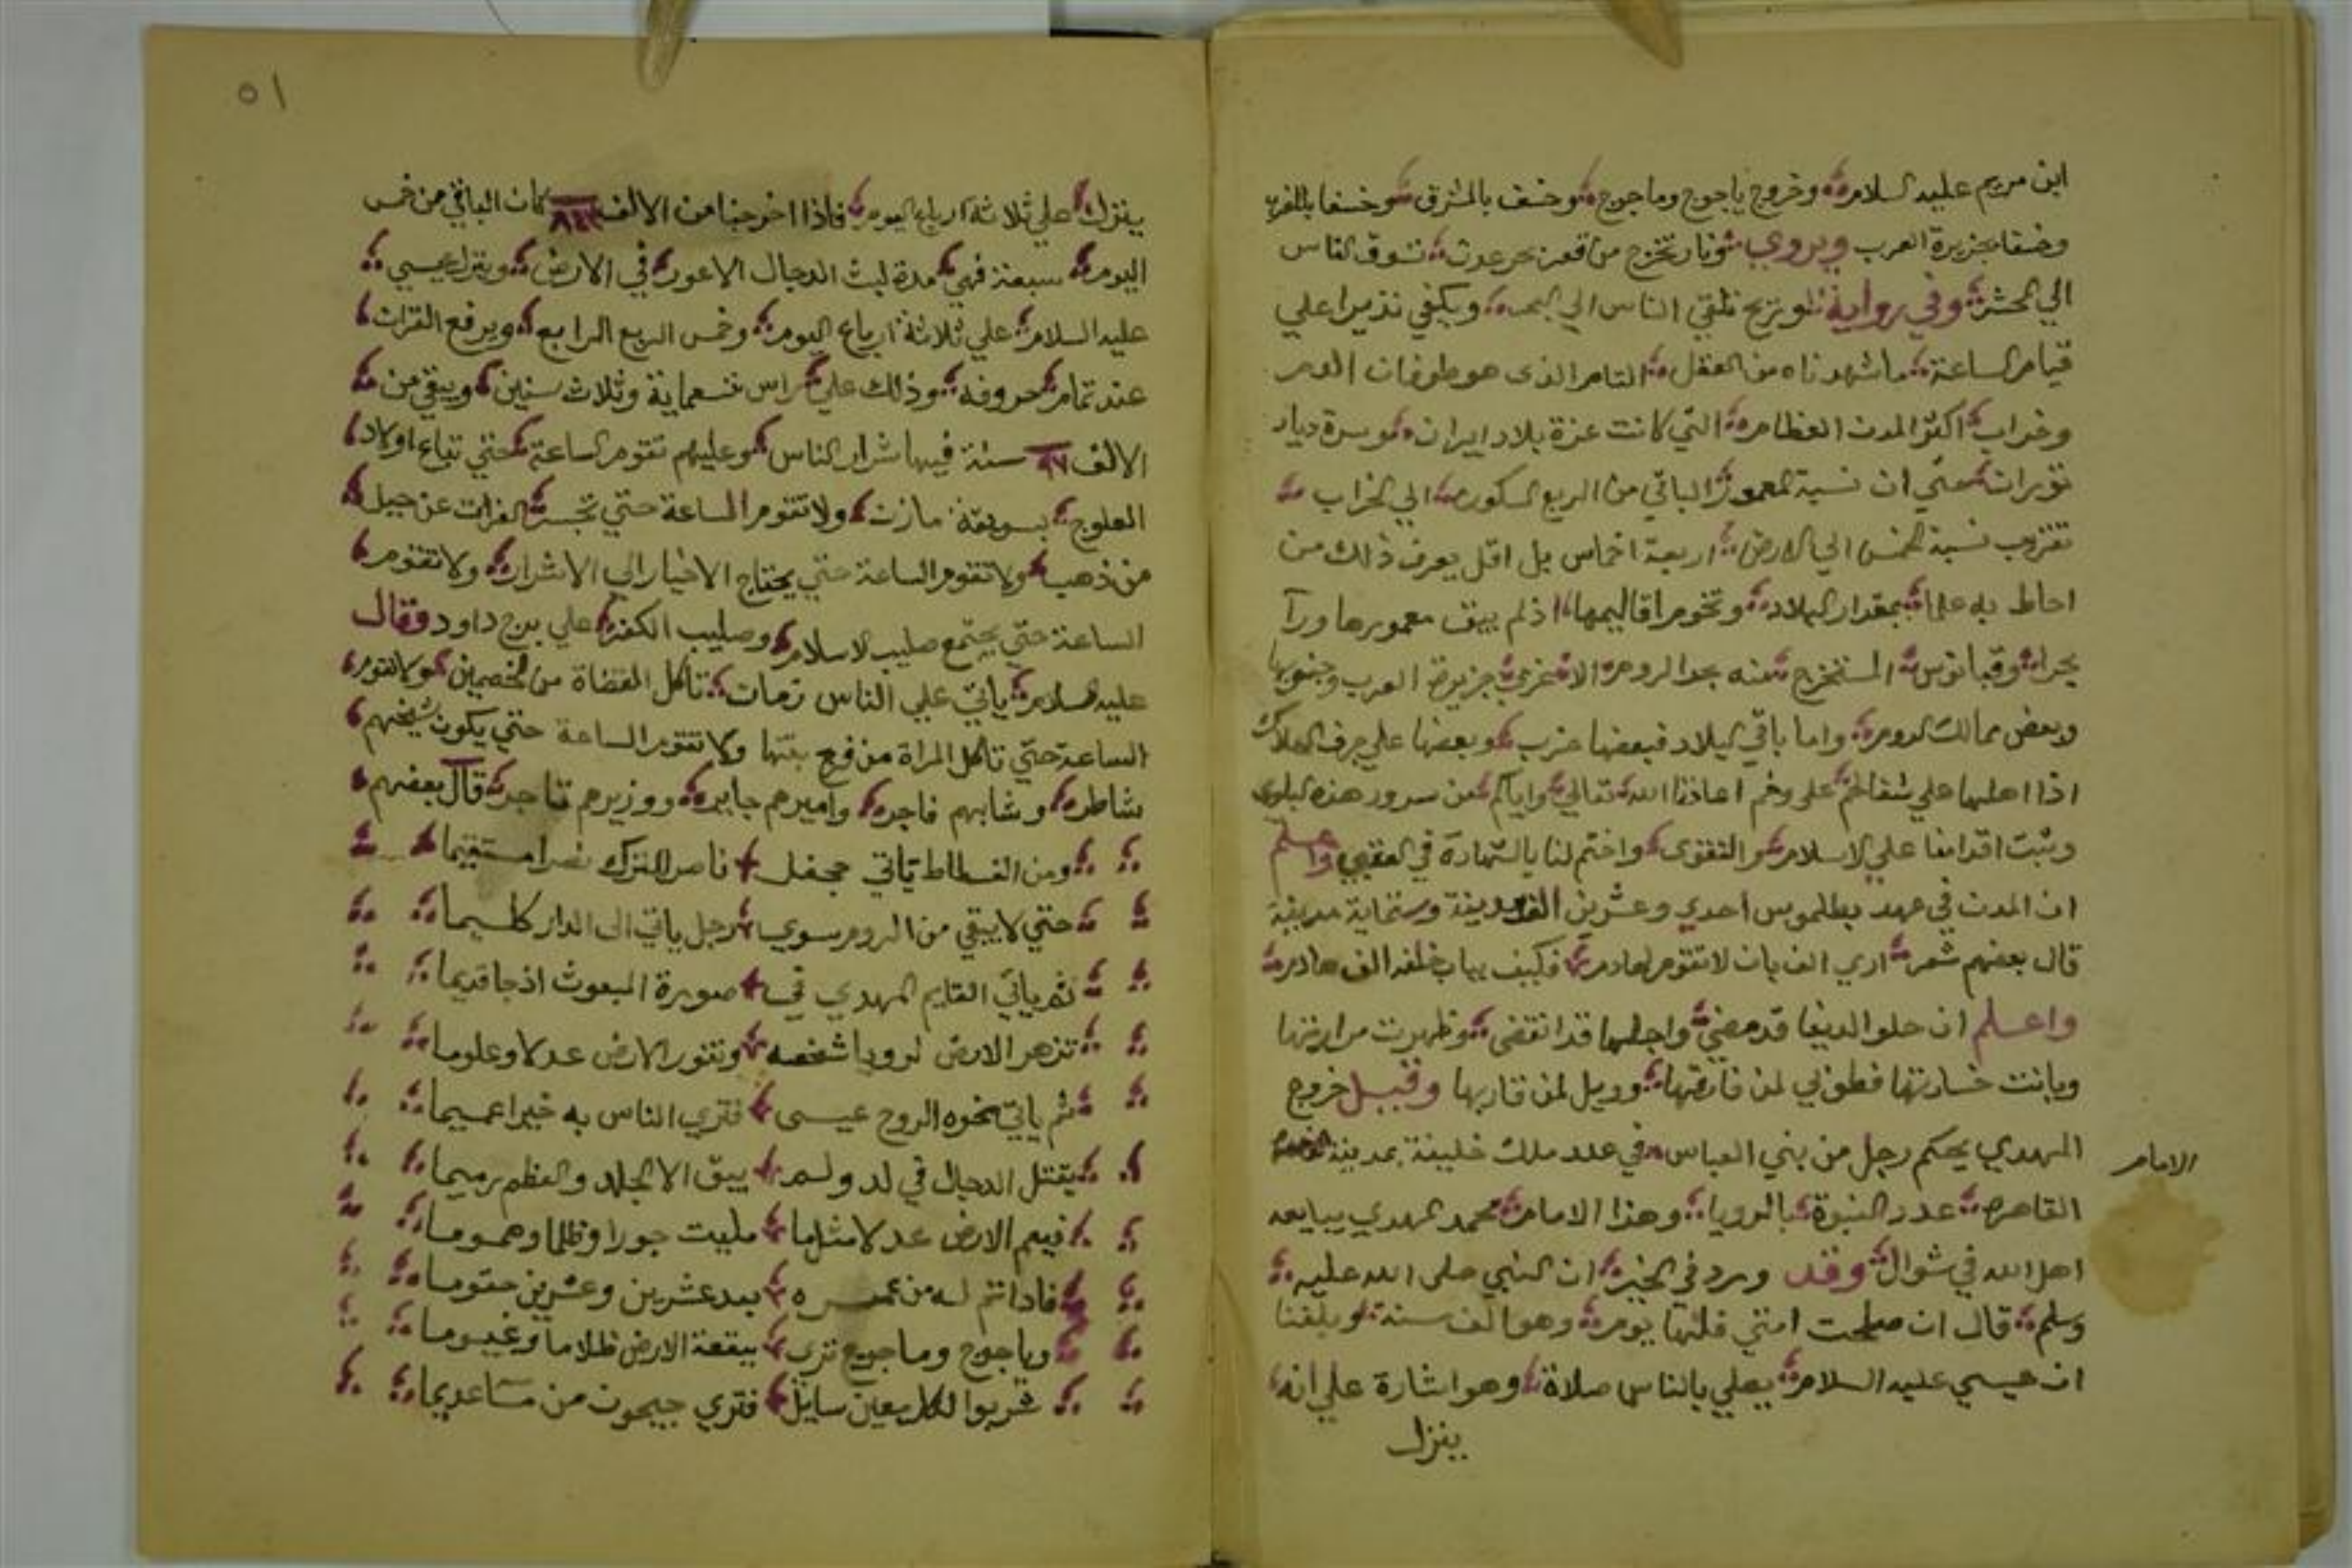 ابن مريم عليه السلام وخروج ياجوج وماجوج وخسف بالمشرق وخسفا بالمغرب
وخسفا بجزيرة العرب ويروي ونار تخرج من قعر بحر عدن تسوق الناس
الي المحشر وفي رواية وتريح تلقي الناس الي البحر ويكفي نذيرا علي
قيام الساعة ما شهدناه من القتل التام الذى هو طوفان الدم
وخراب اكثر المدن العظام التي كانت عزة بلاد ايران وسرة ديار
توران حتي ان نسبة المعمور الباقي من الربع المسكون الي الخراب
تقرب نسبة الخمس الي الارض اربعة اخماس بل اقل يعرف ذلك من
احاط به علما بمقدار البلاد وتخوم اقاليمها اذ لم يبق معمورها ورآ
بحر اوقيانوس المستخرج منه بحر الروم الا غربي جزيرة العرب وجنوبها
وبعض ممالك الروم واما باقي البلاد فبعضها خرب وبعضها علي جرف الهلاك
اذا اهلها علي شفا اعاذنا الله تعالي واياكم من سرور هذه البلوى
وثبت اقدامنا علي الاسلام والتقوى واختم لنا بالشهادة في العقبي واعلم
ان المدن في عهد بطلموس احدي وعشرين الف مدينة وستماية مدينة
قال بعضهم شعر اري الف بان لا تقوم لهادم فكيف ببان خلفه الف هادم
واعلم ان حلو الدنيا قد مضي واجلها قد انقضى وظهرت مرارتها
وبانت خسارتها فطوبي لمن فارقها وويل لمن قاربها وقبيل خروج
المهدي يحكم رجل من بني العباس في عدد ملك خليفة بمدينة
الامام
القاهرة عدد النبوة بالرويا وهذا الامام محمد المهدي يبايعه
اهل الله في شوال وقد ورد في الخبر ان النبي صلى الله عليه
وسلم قال ان صلحت امتي فلها يوم وهو الف سنة وبلغنا
ان عيسي عليه السلام يصلي بالناس صلاة وهو اشارة علي انه
ينزل
٥١
ينزل علي ثلاثة ارباع اليوم فاذا اخرجنا من الالف كان الباقي من خمس
اليوم سبعة فهي مدة لبث الدجال الاعور في الارض وينزل عيسي
عليه السلام علي ثلاثة ارباع اليوم وخمس الربع الرابع ويرفع القران
عند تمام حروفه وذلك علي راس تسعماية وثلاث سنين ويبقي من
الالف ٩٧ سنة فيها شرار الناس وعليهم تقوم الساعة حتي تباع اولاد
العلوج بسويقة مازن ولا تقوم الساعة حتي تحسر الفرات عن جبل
من ذهب ولا تقوم الساعة حتي يحتاج الاخيار الي الاشرار ولا تقوم
الساعة حتي يجتمع صليب الاسلام وصليب الكفر علي برج داود وقال
عليه السلام ياتي علي الناس زمان تاكل القضاة من الخصمين ولا تقوم
الساعة حتي تاكل المراة من فرج بنتها ولا تقوم الساعة حتي يكون شيخهم
شاطر وشابهم فاجر واميرهم جاير ووزيرهم تاجر قال بعضهم
ومن الفسطاط ياتي جحفل ناصر الترك نصرا مستقيما
حتي لا يبقي من الروم سوي رجل ياتي الى الدار كليما
ثم ياتي القايم المهدي في صورة المبعوث اذ جا قديما
تزهر الارض لرويا شخصه وتنور الارض عدلا وعلوما
ثم ياتي نحوه الروح عيسى فتري الناس به خيرا عميما
يقتل الدجال في لد ولم يبق الا الجلد والعظم رميما
فيعم الارض عدلا مثلما مليت جورا وظلما وهموما
فاذا تم له من عمره بعد عشرين وعشرين حتوما
وياجوج وماجوج ترى ببقعة الارض ظلاما وغيوما
شربوا لكل معين سايل فتري جيحون من عديما